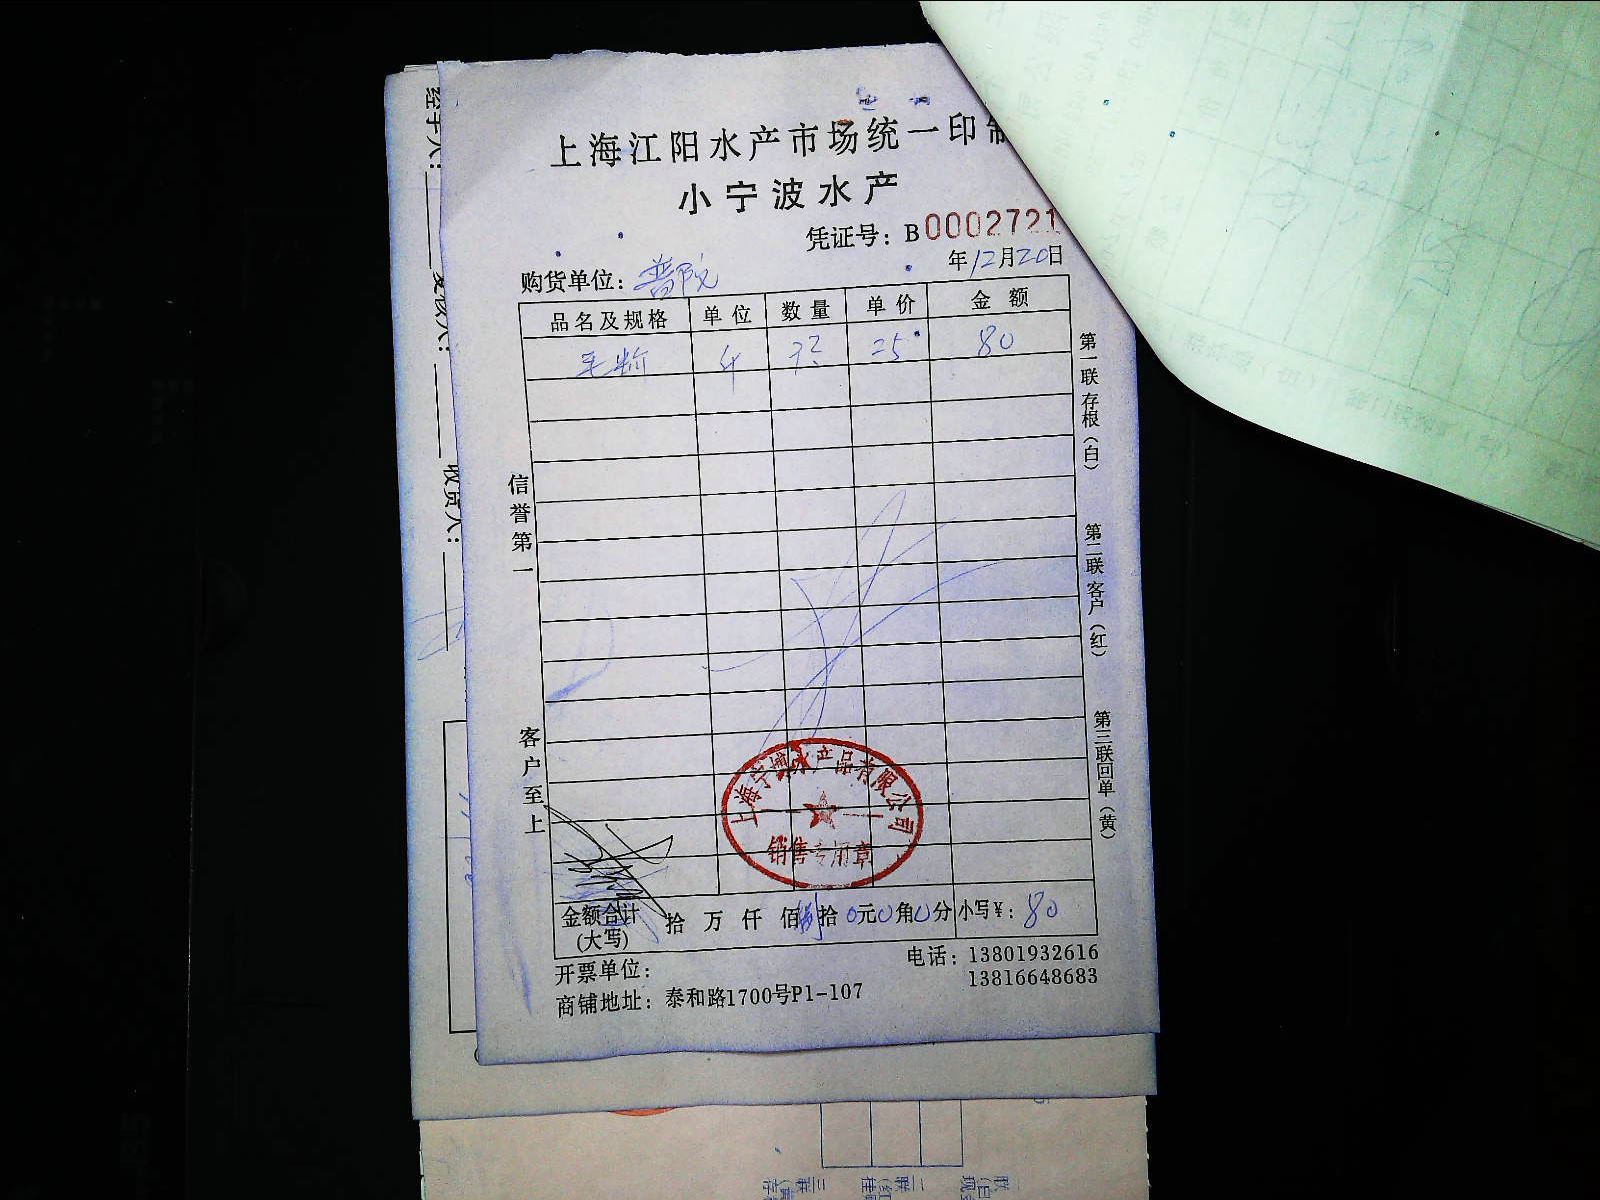 上海江阳水产市场统一印制
小宁波水产
凭证号：B0002721
年12月20日
购货单位：普陀
品名及规格 单位 数量 单价 金额
毛蚶 斤 25 80
信誉第一
客户至上
第一联存根（白）
第二联客户（红）
第三联回单（黄）
上海宁博水产品有限公司
销售专用章
金额合计（大写） 拾 万 仟 佰 捌拾 0元0角0分 小写¥：80
开票单位：
电话：13801932616
13816648683
商铺地址：泰和路1700号P1-107
经手人：
收货人：